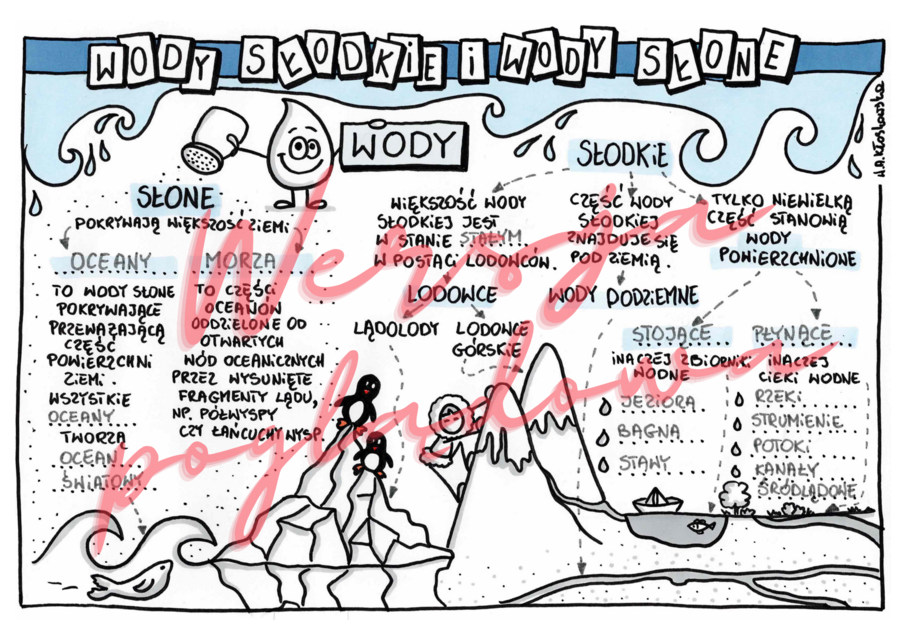 WODY SŁODKIE I WODY SŁONE
W.A.Kłoskowska
WODY
SŁONE
POKRYWAJĄ WIĘKSZOŚĆ ZIEMI
OCEANY
TO WODY SŁONE
POKRYWAJĄCE
PRZEWAŻAJĄCĄ
CZĘŚĆ
POWIERZCHNI
ZIEMI.
WSZYSTKIE
OCEANY
TWORZĄ
OCEAN
ŚWIATOWY
MORZA
TO CZĘŚCI
OCEANÓW
ODDZIELONE OD
OTWARTYCH
WÓD OCEANICZNYCH
PRZEZ WYSUNIĘTE
FRAGMENTY LĄDU,
NP. PÓŁWYSPY
CZY ŁAŃCUCHY WYSP.
SŁODKIE
WIĘKSZOŚĆ WODY
SŁODKIEJ JEST
W STANIE STAŁYM
W POSTACI LODOWCÓW.
LODOWCE
LĄDOLODY
LODOWCE
GÓRSKIE
CZĘŚĆ WODY
SŁODKIEJ
ZNAJDUJE SIĘ
POD ZIEMIĄ.
WODY PODZIEMNE
TYLKO NIEWIELKĄ
CZĘŚĆ STANOWIĄ
WODY
POWIERZCHNIONE
STOJĄCE
INACZEJ ZBIORNIKI
WODNE
JEZIORA
BAGNA
STAWY
PŁYNĄCE
INACZEJ
CIEKI WODNE
RZEKI
STRUMIENIE
POTOKI
KANAŁY
ŚRÓDLĄDOWE
Wersja
poglądowa